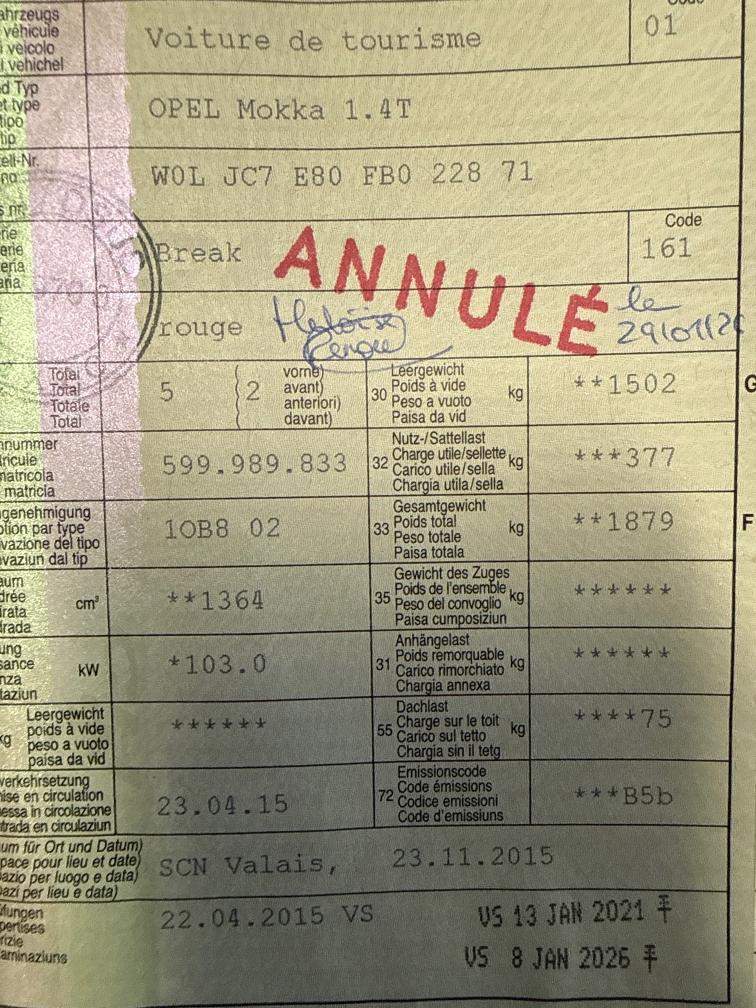 ahrzeugs
véhicule
veicolo
vehichel
Voiture de tourisme
01
d Typ
et type
tipo
tip
OPEL Mokka 1.4T
ell-Nr.
W0L JC7 E80 FB0 228 71
s nr.
Code
Break
161
ANNULÉ
rouge
le
29/01/26
Total
Total
Totale
Total
5
2
vorne)
avant)
anteriori)
davant)
30
Leergewicht
Poids à vide
Peso a vuoto
Paisa da vid
kg
**1502
G
nnummer
tricule
matricola
matricla
599.989.833
32
Nutz-/Sattellast
Charge utile/sellette
Carico utile/sella
Chargia utila/sella
kg
***377
genehmigung
ption par type
vazione del tipo
vaziun dal tip
1OB8 02
33
Gesamtgewicht
Poids total
Peso totale
Paisa totala
kg
**1879
F
aum
drée
drata
drada
cm³
**1364
35
Gewicht des Zuges
Poids de l'ensemble
Peso del convoglio
Paisa cumposiziun
kg
******
ung
sance
nza
taziun
kW
*103.0
31
Anhängelast
Poids remorquable
Carico rimorchiato
Chargia annexa
kg
******
kg
Leergewicht
poids à vide
peso a vuoto
paisa da vid
******
55
Dachlast
Charge sur le toit
Carico sul tetto
Chargia sin il tetg
kg
****75
verkehrsetzung
mise en circulation
messa in circolazione
ntrada en circulaziun
23.04.15
72
Emissionscode
Code émissions
Codice emissioni
Code d'emissiuns
***B5b
um für Ort und Datum)
pace pour lieu et date)
azio per luogo e data)
azi per lieu e data)
SCN Valais,
23.11.2015
üfungen
pertises
rizie
aminaziuns
22.04.2015 VS
VS 13 JAN 2021
VS 8 JAN 2026